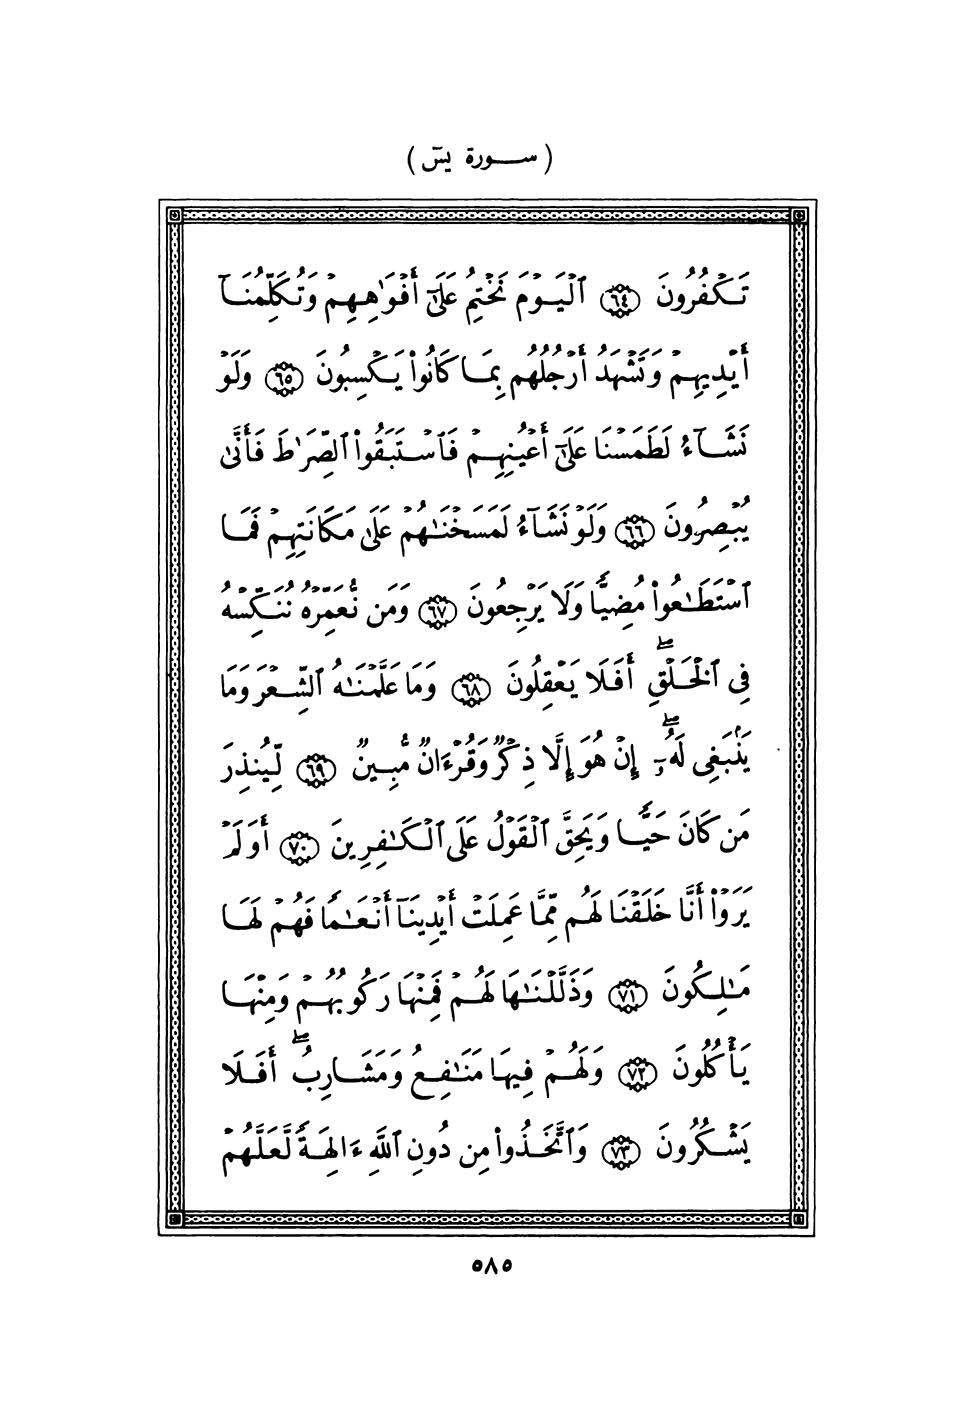 ( سورة يسٓ )
تَكْفُرُونَ ٦٤ ٱلْيَوْمَ نَخْتِمُ عَلَىٰٓ أَفْوَٰهِهِمْ وَتُكَلِّمُنَآ
أَيْدِيهِمْ وَتَشْهَدُ أَرْجُلُهُم بِمَا كَانُوا۟ يَكْسِبُونَ ٦٥ وَلَوْ
نَشَآءُ لَطَمَسْنَا عَلَىٰٓ أَعْيُنِهِمْ فَٱسْتَبَقُوا۟ ٱلصِّرَٰطَ فَأَنَّىٰ
يُبْصِرُونَ ٦٦ وَلَوْ نَشَآءُ لَمَسَخْنَٰهُمْ عَلَىٰ مَكَانَتِهِمْ فَمَا
ٱسْتَطَٰعُوا۟ مُضِيًّا وَلَا يَرْجِعُونَ ٦٧ وَمَن نُّعَمِّرْهُ نُنَكِّسْهُ
فِى ٱلْخَلْقِۖ أَفَلَا يَعْقِلُونَ ٦٨ وَمَا عَلَّمْنَٰهُ ٱلشِّعْرَ وَمَا
يَنۢبَغِى لَهُۥٓۖ إِنْ هُوَ إِلَّا ذِكْرٌ وَقُرْءَانٌ مُّبِينٌ ٦٩ لِّيُنذِرَ
مَن كَانَ حَيًّا وَيَحِقَّ ٱلْقَوْلُ عَلَى ٱلْكَٰفِرِينَ ٧٠ أَوَلَمْ
يَرَوْا۟ أَنَّا خَلَقْنَا لَهُم مِّمَّا عَمِلَتْ أَيْدِينَآ أَنْعَٰمًا فَهُمْ لَهَا
مَٰلِكُونَ ٧١ وَذَلَّلْنَٰهَا لَهُمْ فَمِنْهَا رَكُوبُهُمْ وَمِنْهَا
يَأْكُلُونَ ٧٢ وَلَهُمْ فِيهَا مَنَٰفِعُ وَمَشَارِبُۖ أَفَلَا
يَشْكُرُونَ ٧٣ وَٱتَّخَذُوا۟ مِن دُونِ ٱللَّهِ ءَالِهَةً لَّعَلَّهُمْ
٥٨٥